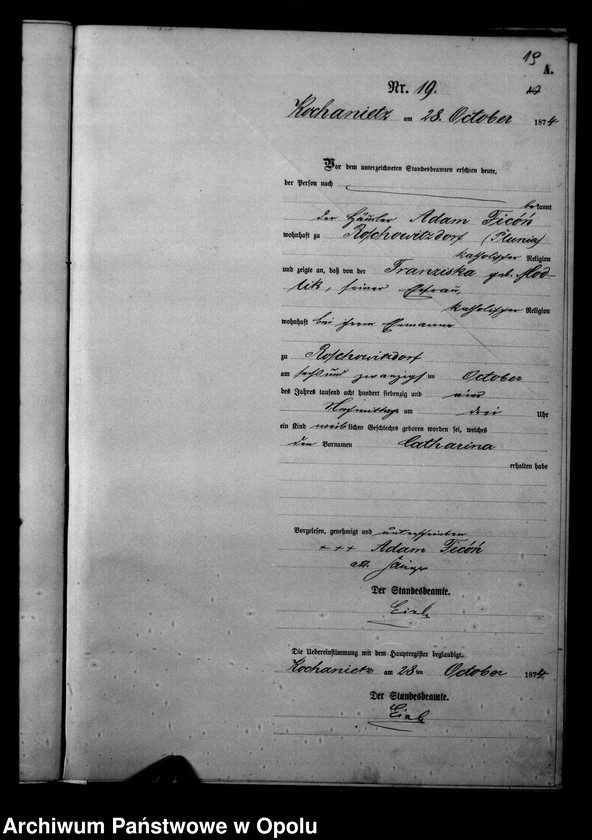 19
A.
Nr. 19.
Kochanietz am 28. October 1874
Vor dem unterzeichneten Standesbeamten erschien heute,
der Person nach
bekannt
der Häusler Adam Ficoń
wohnhaft zu Roschowitzdorf
katholischer Religion
und zeigte an, daß von der Franziska geb.
seiner Ehefrau,
katholischer Religion
wohnhaft bei ihrem Ehemanne
zu Roschowitzdorf
am sechs und zwanzigsten October
des Jahres tausend acht hundert siebenzig und vier
Nachmittags um drei Uhr
ein Kind weiblichen Geschlechts geboren worden sei, welches
den Vornamen Catharina
erhalten habe
Vorgelesen, genehmigt und unterschrieben
+ + + Adam Ficoń
Der Standesbeamte.
Die Uebereinstimmung mit dem Hauptregister beglaubigt.
Kochanietz am 28ten October 1874
Der Standesbeamte.
Archiwum Państwowe w Opolu